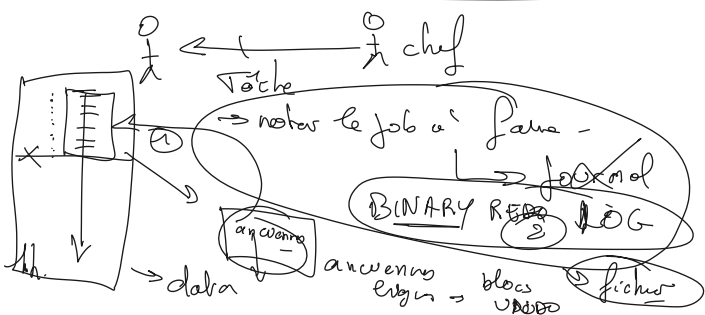 chef
Tâche
→ noter le job à faire -
journal
①
BINARY REDO LOG
2
anciennes
1h.
→ data
anciennes
→ blocs
UNDO
fichier